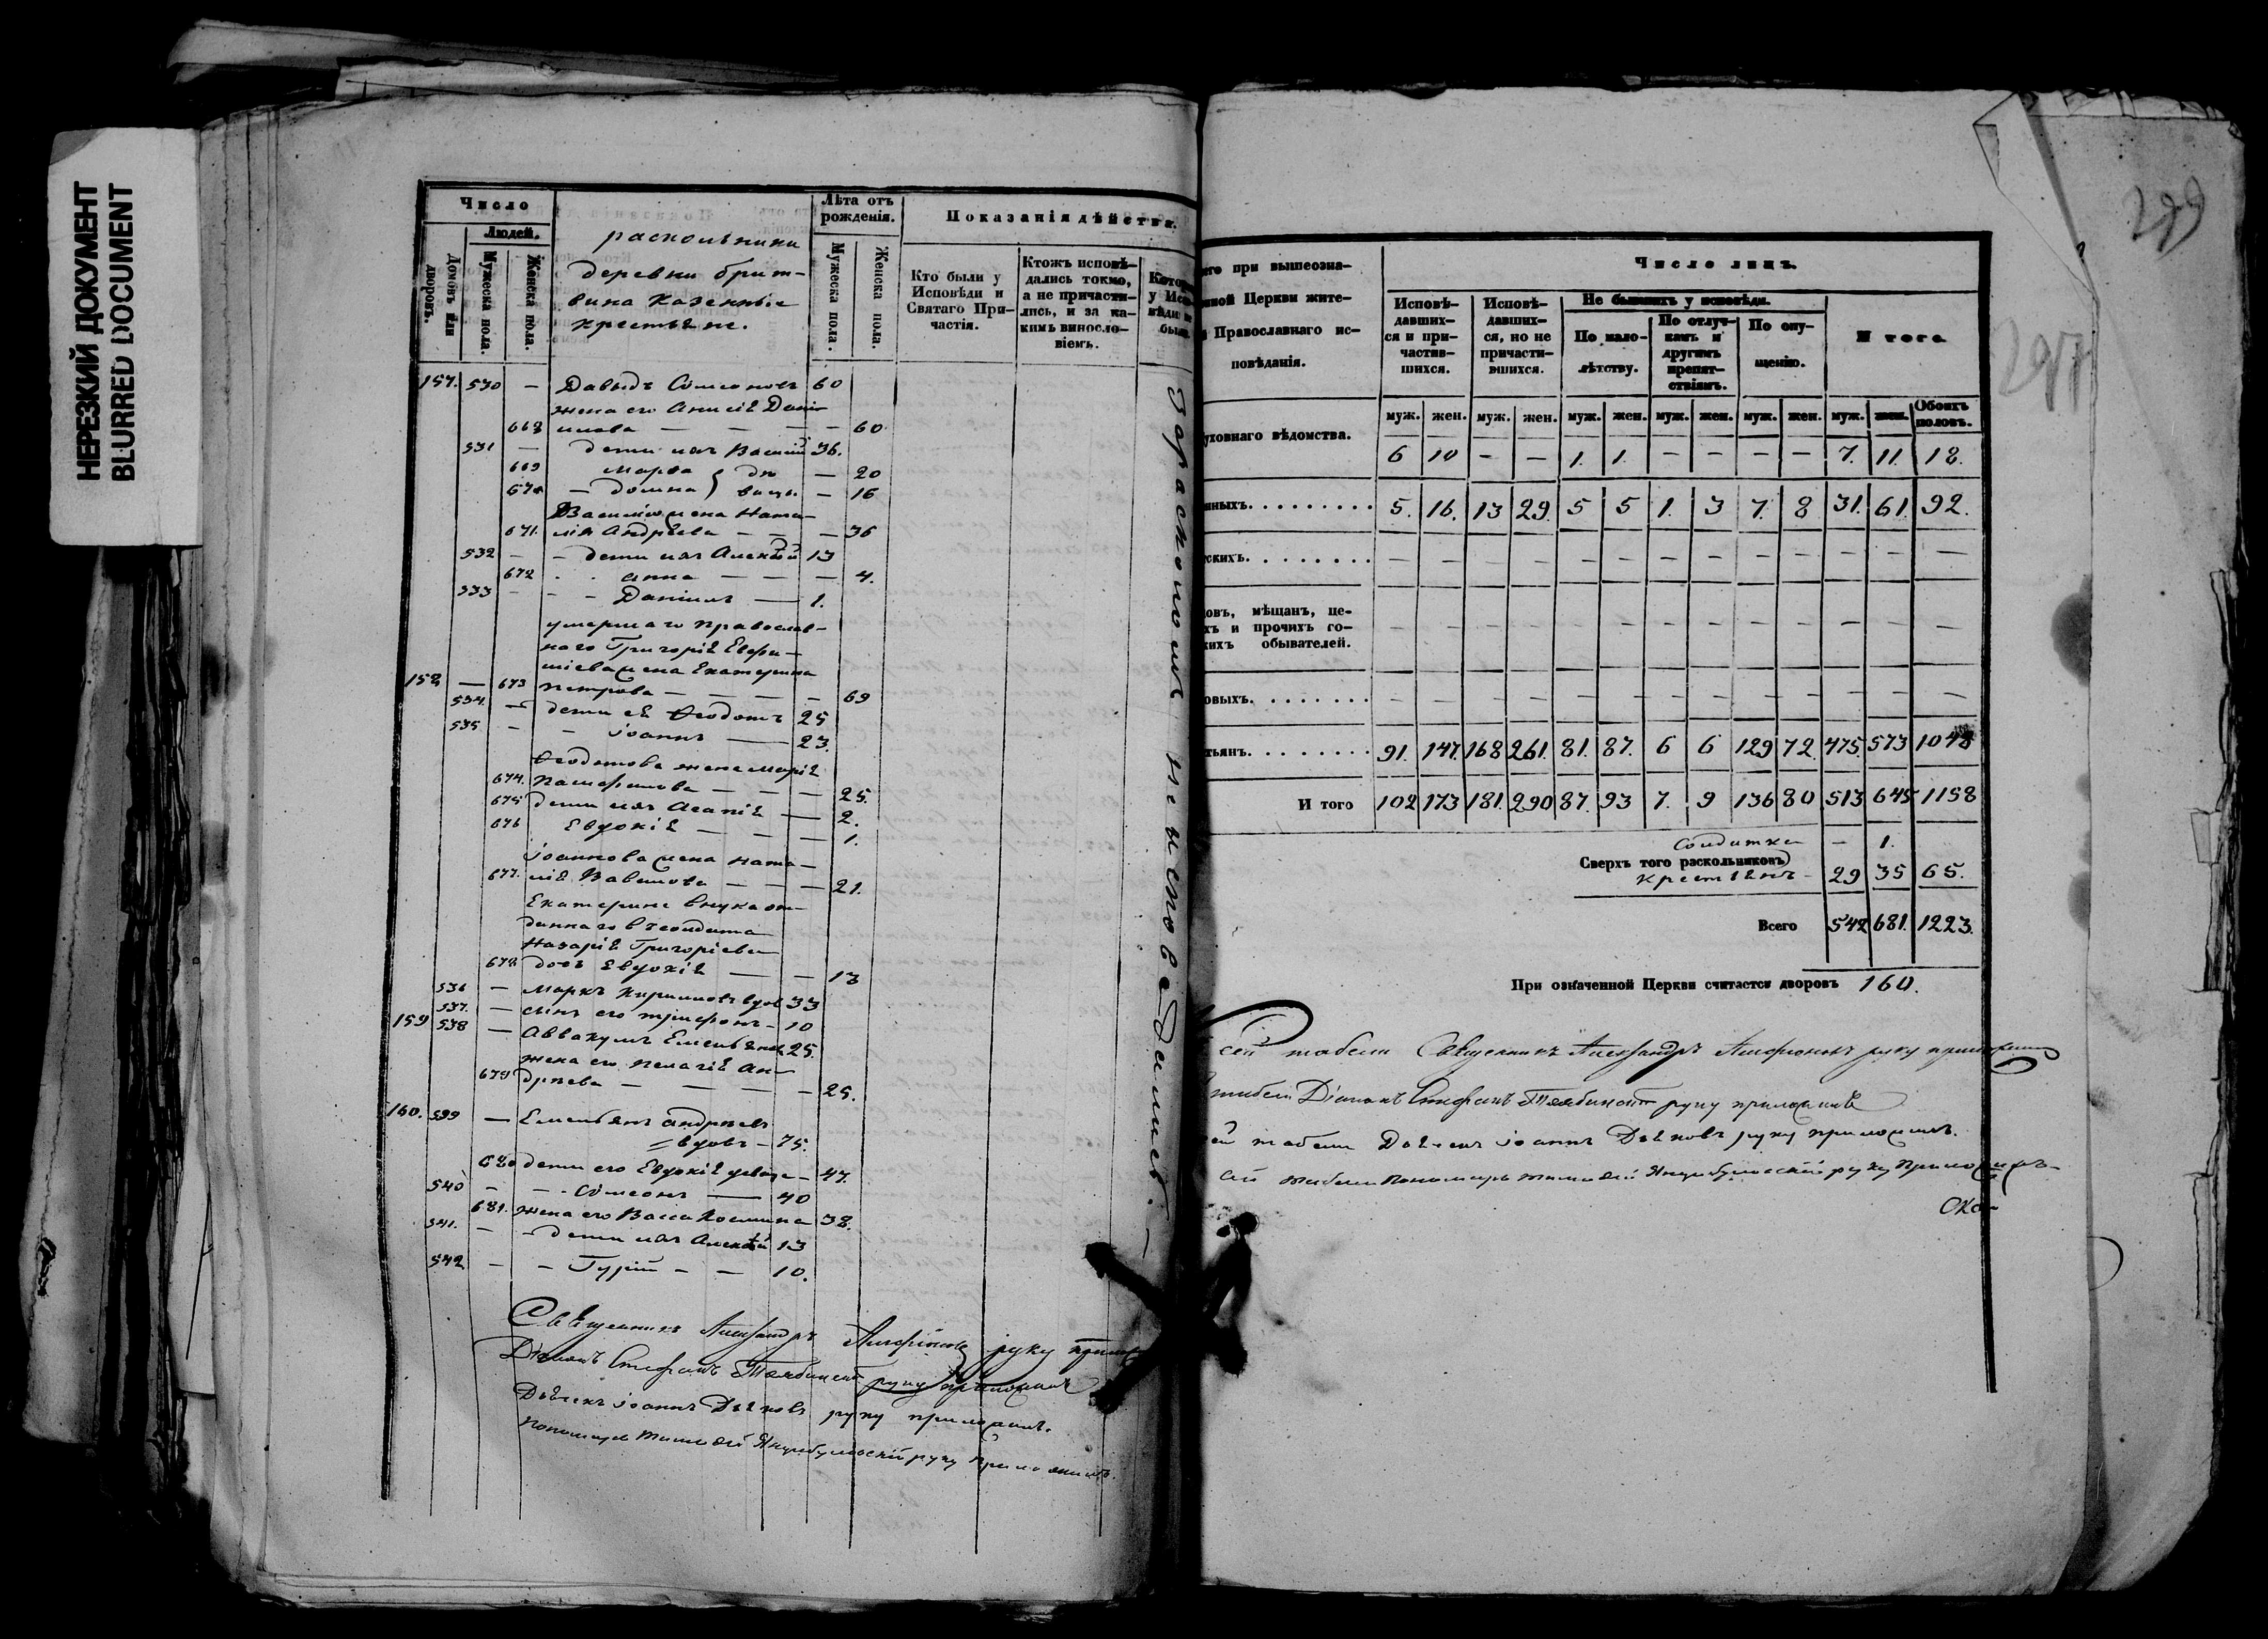 НЕРЕЗКИЙ ДОКУМЕНТ
BLURRED DOCUMENT
Число
Людей.
Домовъ или дворовъ.
Мужеска пола.
Женска пола.
раскольники
деревни брит-
вина казенные
крестьяне.
Лѣта отъ рожденія.
Мужеска пола.
Женска пола.
Показанія дѣйства.
Кто были у Исповѣди и Святаго При-частія.
Ктожъ исповѣ-дались токмо, а не причасти-лись, и за ка-кимъ винosло-віемъ.
157. 530 — Давыдъ Симеоновъ 60
жена его Анисія Дани-
668 илова — — — — 60
531 — дети ихъ Василій 36.
669 Марѳа } дѣ — 20
670 — Домна } вицы — 16
Василія жена Ната-
671. лія Андрѣева — — — 36
532 — — дети ихъ Алексѣй 13
672 Анна — — — 4.
533 — — — Даніилъ — 1.
умершаго православ-
наго Григорія Евфи-
міева жена Екатерина
158 — 673 Петрова — — — — 69
534. — дети ея Ѳеодотъ 25
535 — — Іоаннъ — 23.
Ѳеодотова жена Марія
674. Памфилова — — — 25.
675 дети ихъ Агапія — 2.
676 Евдокія — — — 1.
Іоаннова жена Ната-
677. лія Вавилова — — — 21.
Екатерины внука от-
даннаго в солдата
Назарія Григоріева
678. дочь Евдокія — — 13
536 — Маркъ Кириловъ вдов 33
537. — сынъ его Трифонъ — 10
159 538 — Аввакумъ Емельянов 25.
жена его Пелагія Ан-
679 дрѣева — — — — 25.
160. 539 — Емельянъ Андрѣевъ
вдовъ — 75.
680 дети его Евдокія девица — 47.
540 — — Симеонъ — 40
681. жена его Васса Космина 38.
541. — — дети ихъ Алексѣй 13
542 — — Гурій — — 10.
За расколомъ не исповедались. —
Священникъ Александръ Анфіоновъ руку прилож
Діаконъ Стефанъ руку приложилъ
Дьячекъ Іоаннъ Дьяковъ руку приложилъ.
Пономарь Тимоѳей руку приложилъ.
299
297
его при вышеозна-
нной Церкви жите-
й Православнаго ис-
повѣданія.
Число лицъ.
Исповѣ-давших-ся и при-частив-шихся.
Исповѣ-давших-ся, но не причасти-вшихся.
Не бывшихъ у исповѣди.
По мало-лѣтству.
По отлуч-камъ и другимъ препят-ствіямъ.
По опу-щенію.
И того
муж. жен. муж. жен. муж. жен. муж. жен. муж. жен. муж. жен. Обоихъ половъ.
уховнаго вѣдомства. 6 10 — — 1. 1. — — — — 7. 11. 18.
нныхъ. 5. 16. 13 29. 5 5 1. 3 7. 8 31. 61. 92.
тскихъ. — — — — — — — — — — — — —
овъ, мѣщанъ, це-
хъ и прочихъ го-
кихъ обывателей. — — — — — — — — — — — — —
овыхъ. — — — — — — — — — — — — —
тьянъ. 91. 147. 168 261. 81. 87. 6 6 129 72. 475. 573 1048
И того 102 173 181. 290 87. 93 7. 9 136 80 513 645 1158
Солдатка — 1.
Сверхъ того раскольниковъ
Крестьянъ — 29 35 65.
Всего 542 681. 1223.
При означенной Церкви считается дворовъ 160.
сей табели Священникъ Александръ Анфіоновъ руку приложилъ
табели Діаконъ Стефанъ руку приложилъ
ей табели Дьячекъ Іоаннъ Дьяковъ руку приложилъ.
сей табели Пономарь Тимоѳей руку приложилъ